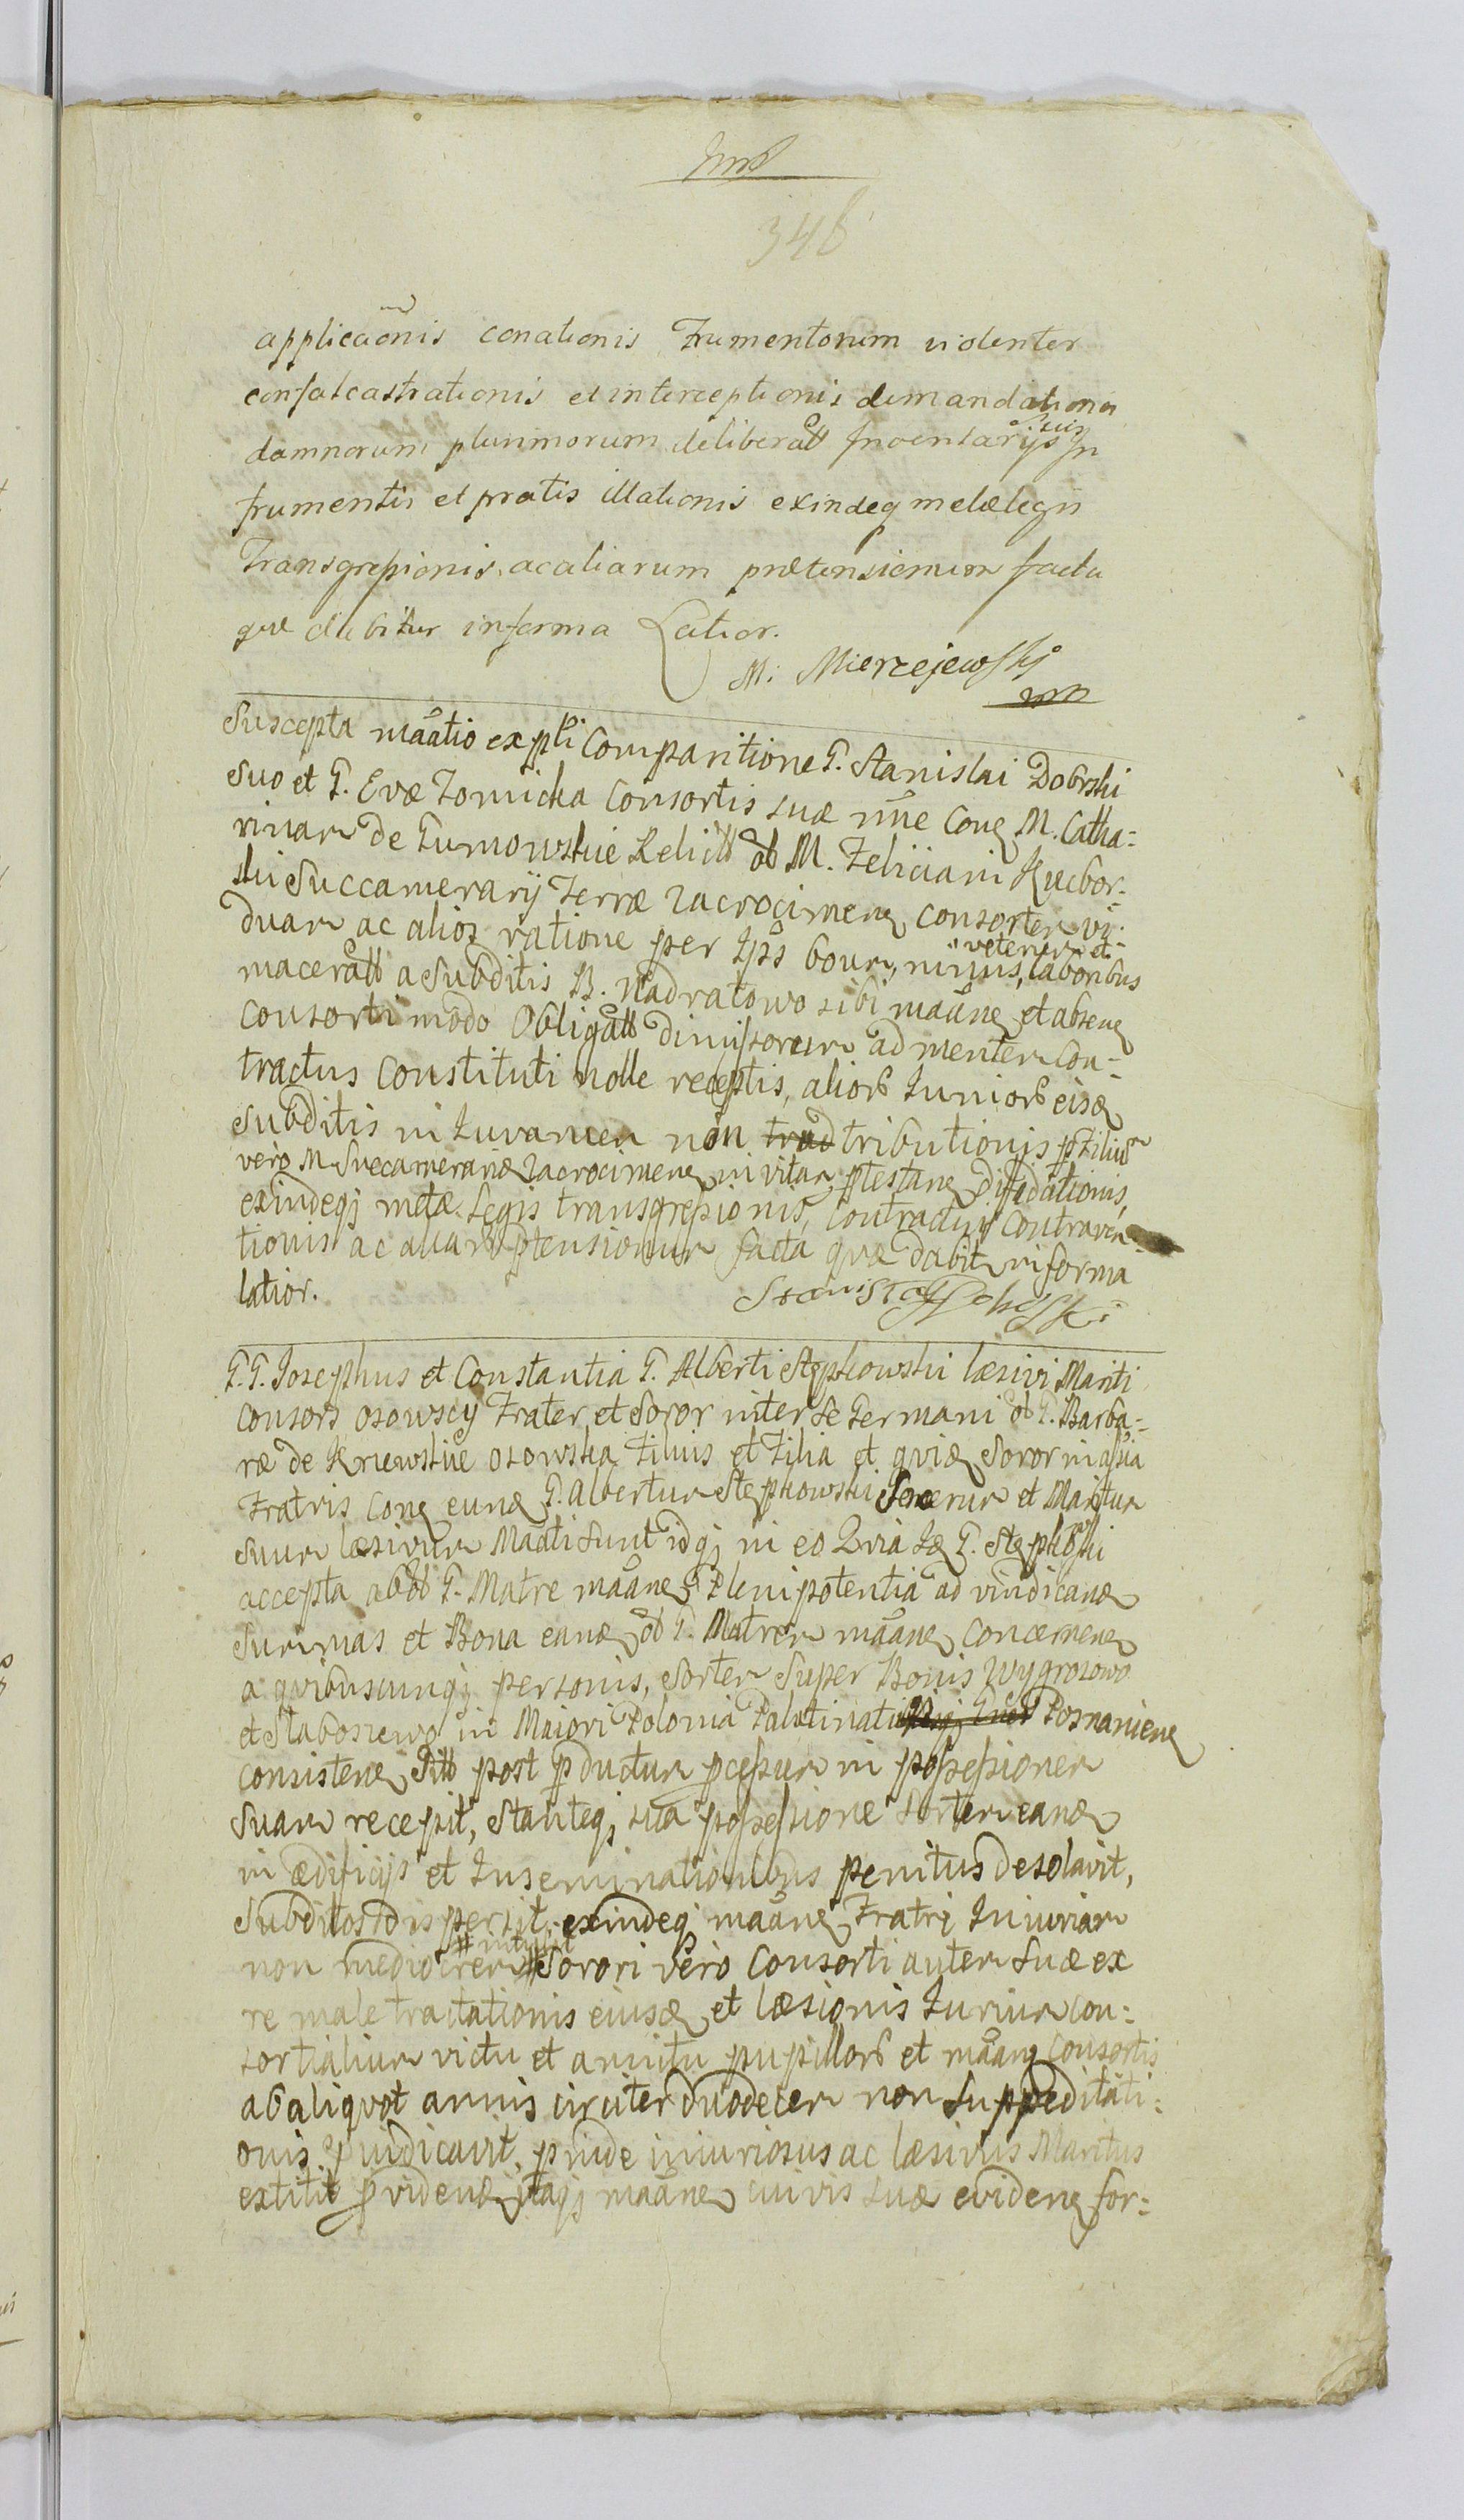 348
applicaonis conationis Frumentorum violenter
confalcastrationis et interceptionis demandationis
damnorum plurimorum deliberatt Inventarijs suis In
frumentis et pratis illationis exindeq metæ legis
Transgressionis, ac aliarum prætensionum facta
quæ dabitur in forma Latior.
M: Mierzejewski
mp
Suscepta maatio ex pti Comparitione G. Stanislai Dobrski
suo et G. Evæ Zomicka Consortis suæ nne Cone M. Catha=
rinam de Gumowskie Relictt ol M. Feliciani Kucbor=
ski Succamerarij Terræ Zacrocimen consortem vi=
duam ac alios ratione per Ips bonum, minus, veterum et laboribus
maceratt a Subditis B. Nadratowo sibi maane et absen
Consorti modo Obligatt dimissorum ad mentem Con=
tractus Constituti nolle receptis, alior Junior eisd
Subditis in Juvamen non trad tributionis p Filium
vero M Succamerariæ Zacrocimen invitam ptestan Difidationis,
exindeqz metæ Legis transgressionis, Contractui Contraven=
tionis ac aliar ptensionum facta quæ dabit in forma
latior.
G. G. Josephus et Constantia G. Alberti Stepkowski læsivi Mariti
Consors Osowscy Frater et Soror inter se Germani ol G. Barba=
ræ de Kriewskie Osowska Filius et Filia et quid Soror in assia
Fratris Cone eund G. Albertum Stepkowski Sororum et Maritum
suum læsivum Maati sunt idqz in eo Quia Id G. Stepkowski
accepta ab ol G. Matre maane Plenipotentia ad vindicand
Summas et Bona eand ol G. Matrem maane concernen
a quibuscunqz personis, Sortem super Bonis Wygrozowo
et Slabosewo in Maiori Polonia Palatinatu Posnanien
consisten Sitt post pductum pcessum in possessionem
suam recepit, stanteqz sua possessione Sortem eand
in ædificijs et Inseminationibus penitus desolavit,
Subditos dispersit, exindeq maane Fratri Iniuriam
non mediocrem # intulit # Sorori vero Consorti autem suæ ex
re male tractationis eiusd et læsionis Jurium con=
sortialium victu et amictu pupillor et maane Consortis
ab aliquot annis circiter duodecem non suppeditati=
onis pjudicavit, pinde iniuriosus ac læsivus Maritus
extitit providend itaqz maane cuivis suæ eviden for=